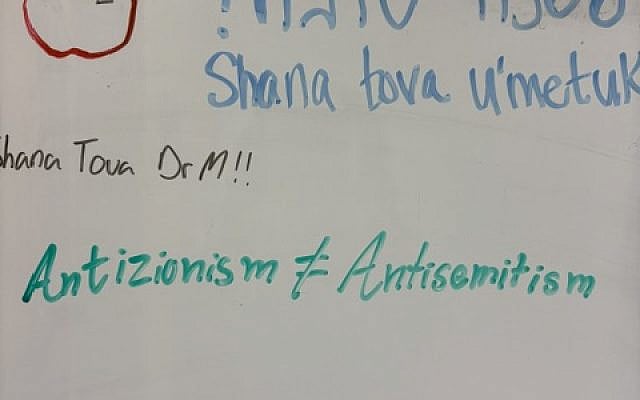 Shana tova u'metuk
Shana Tova Dr M!!
Antizionism ≠ Antisemitism